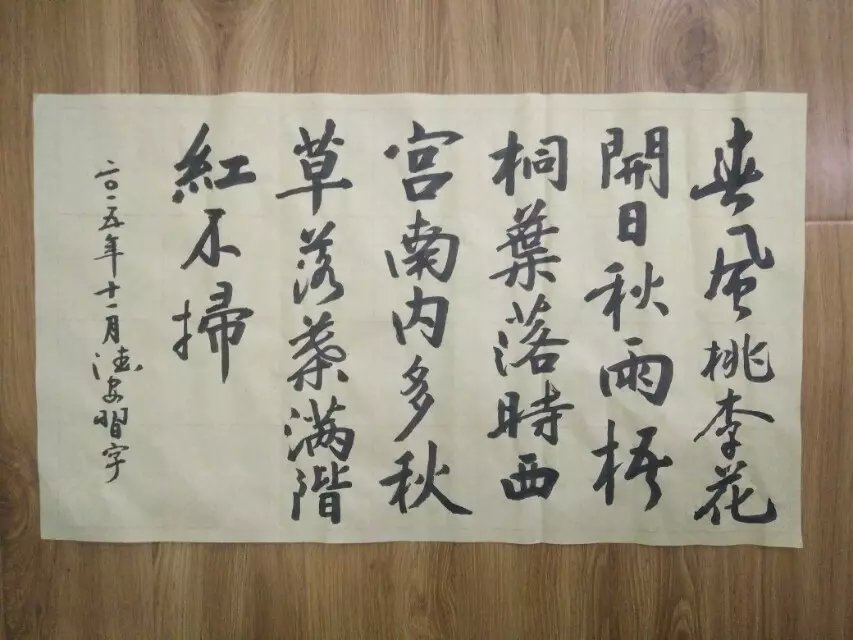 春風桃李花
開日秋雨梧
桐葉落時西
宮南内多秋
草落葉满階
紅不掃
二〇一五年十一月德安習字